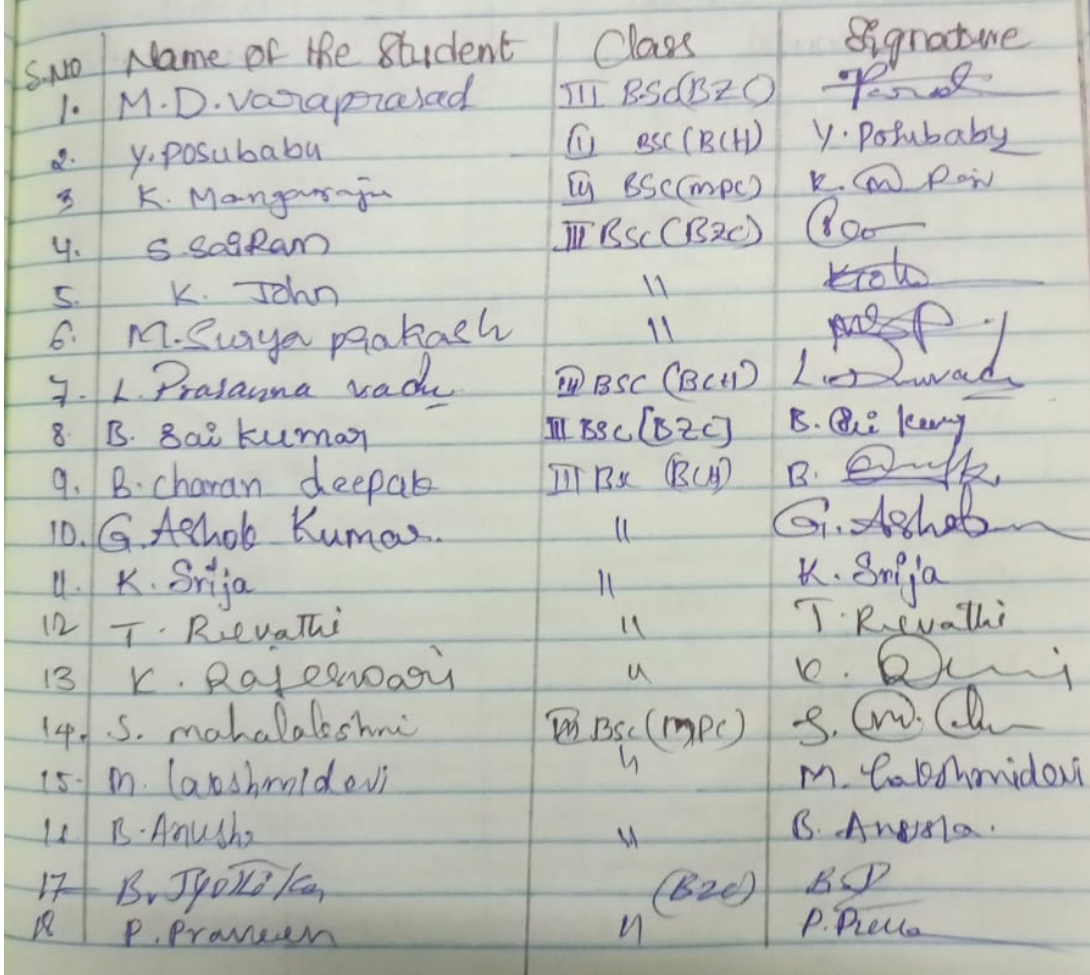 S.NO Name of the Student Class Signature
1. M.D. varaprasad III BSc(BZC)
2. Y. posubabu (i) BSC (BCH) Y. Posubaby
3 K. Mangaraju BSC (mpc) K. M
4. S. SaiRam III BSc (BZC)
5. K. John 11
6. M. Surya prakash 11
7. L. Prasanna vadu BSC (BCH) L.
8. B. Sai kumar III BSc [BZC] B. Sai
9. B. charan deepak III BSc (BCH) B.
10. G. Ashok Kumar. 11 G. Ashok
11. K. Srija 11 K. Srija
12 T. Revathi 11 T. Revathi
13 K. Rajeswari 11 K.
14. S. mahalakshmi III BSc (mpc) S. M.
15. M. lakshmidevi 11 M. Lakshmidevi
11 B. Anusha 11 B. Anusha.
17 B. Jyothika (BZC)
18 P. Praneen 11 P.